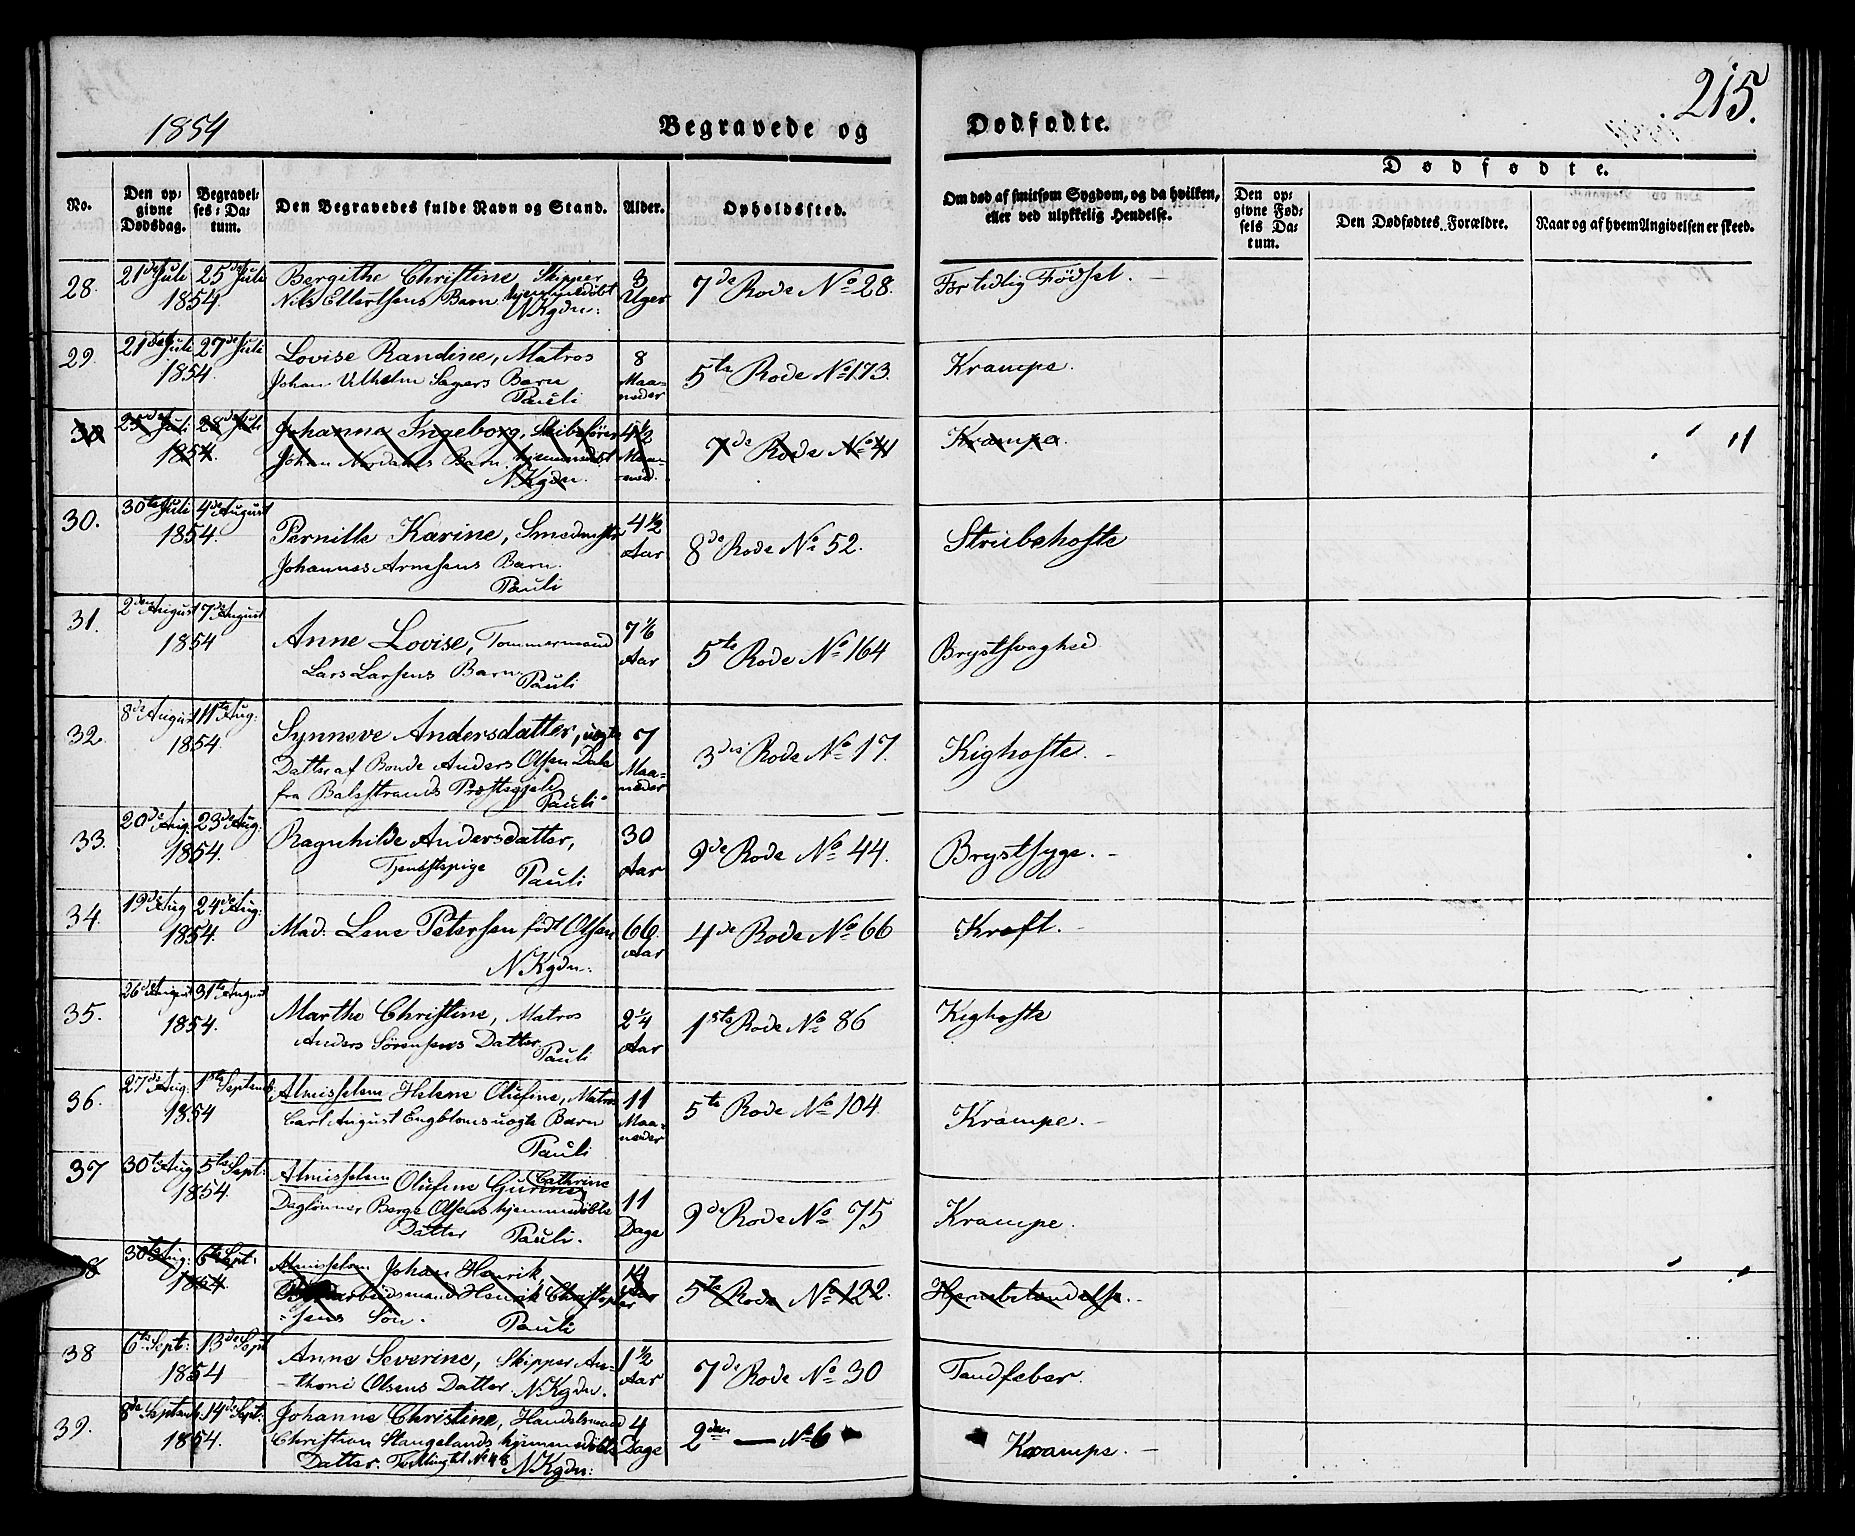 215.
1854
Begravede og Dødfødte.
Dødfødte.
No.
Den opgivne Dødsdag.
Begravelses-Datum.
Den Begravedes fulde Navn og Stand.
Alder.
Opholdssted.
Om død af smitsom Sygdom, og da hvilken, eller ved ulykkelig Hendelse.
Den opgivne Fødsels Datum.
Den Dødfødtes Forældre.
Naar og af hvem Angivelsen er skeed.
28. 21de Juli 25de Juli Bergithe Christine Skipper 3 7de Rode No 28. For tidlig Födsel.
1854. Nils Ellertsens Barn hjemmedöbt Uger
NKgdn:
29. 21de Juli 27de Juli Lovise Randine, Matros 8 5te Rode No 173. Krampe.
1854. Johan Vilhelm Sagers Barn Maaneder
Pauli
30 25de Juli 28de Juli Johanne Ingeborg, Skibsförer 4 1/2 7de Rode No 41 Krampe.
1854. Johan Nordahls Barn hjemmedöbt Maaned.
NKgdn.
30. 30te Juli 4de August Pernille Karine, Smedmester 4 1/2 8de Rode No 52. Strubehoste
1854. Johannes Arnesens Barn. Aar
Pauli
31. 2den August 7de August Anne Lovise, Tømmermand 7 1/6 5te Rode No 164 Brystsvaghed
1854 Lars Larsens Barn Aar
Pauli
32. 8de August 11te Aug: Synneve Andersdatter, uægte 7 3die Rode No 17. Kighoste.
1854. Datter af Bonde Anders Olsen Dale Maaneder
fra Balestrands Præstegjeld Pauli
33. 20de Aug. 23de Aug: Ragnhilde Andersdatter, 30 9de Rode No 44. Brystsyge.
1854. Tjenestepige Pauli Aar
34. 19de Aug 24de Aug: Mad. Lene Petersen født Olsen 66 4de Rode No 66 Kræft.
1854. NKgdn: Aar
35. 26de August 31te August Marthe Christine, Matros 2 1/4 1ste Rode No 86 Kighoste
1854. Anders Sörensens Datter Aar
Pauli
36. 27de Aug. 1ste Septemb: Almisselem Helene Olufine, Matros 11 5te Rode No 104. Krampe.
1854 Carl August Engbloms uægte Barn Maaneder
Pauli
37 30te Aug 5te Sept: Almisselem Olufine Gurine Cathrine 11 9de Rode No 75 Krampe.
1854. Daglönner Berge Olsens hjemmedöbte Dage
Datter Pauli.
38 30te Aug: 6te Sept: Almisselem Johan Henrik, 14 5te Rode No 122. Hjernebetændelse.
1854. Henrik Christophersens Sön.
Pauli
38 6te Sept: 13de Sept Anne Severine, Skipper An- 1 1/2 7de Rode No 30 Tandfeber.
1854 thoni Olsens Datter NKgdn. Aar
39. 8de Septemb. 14de Sept: Johanne Christine, Handelsmand 4 2den — No 6 Krampe.
1854. Christian Stangelands hjemmedöbte Dage
Datter. NKgdn: